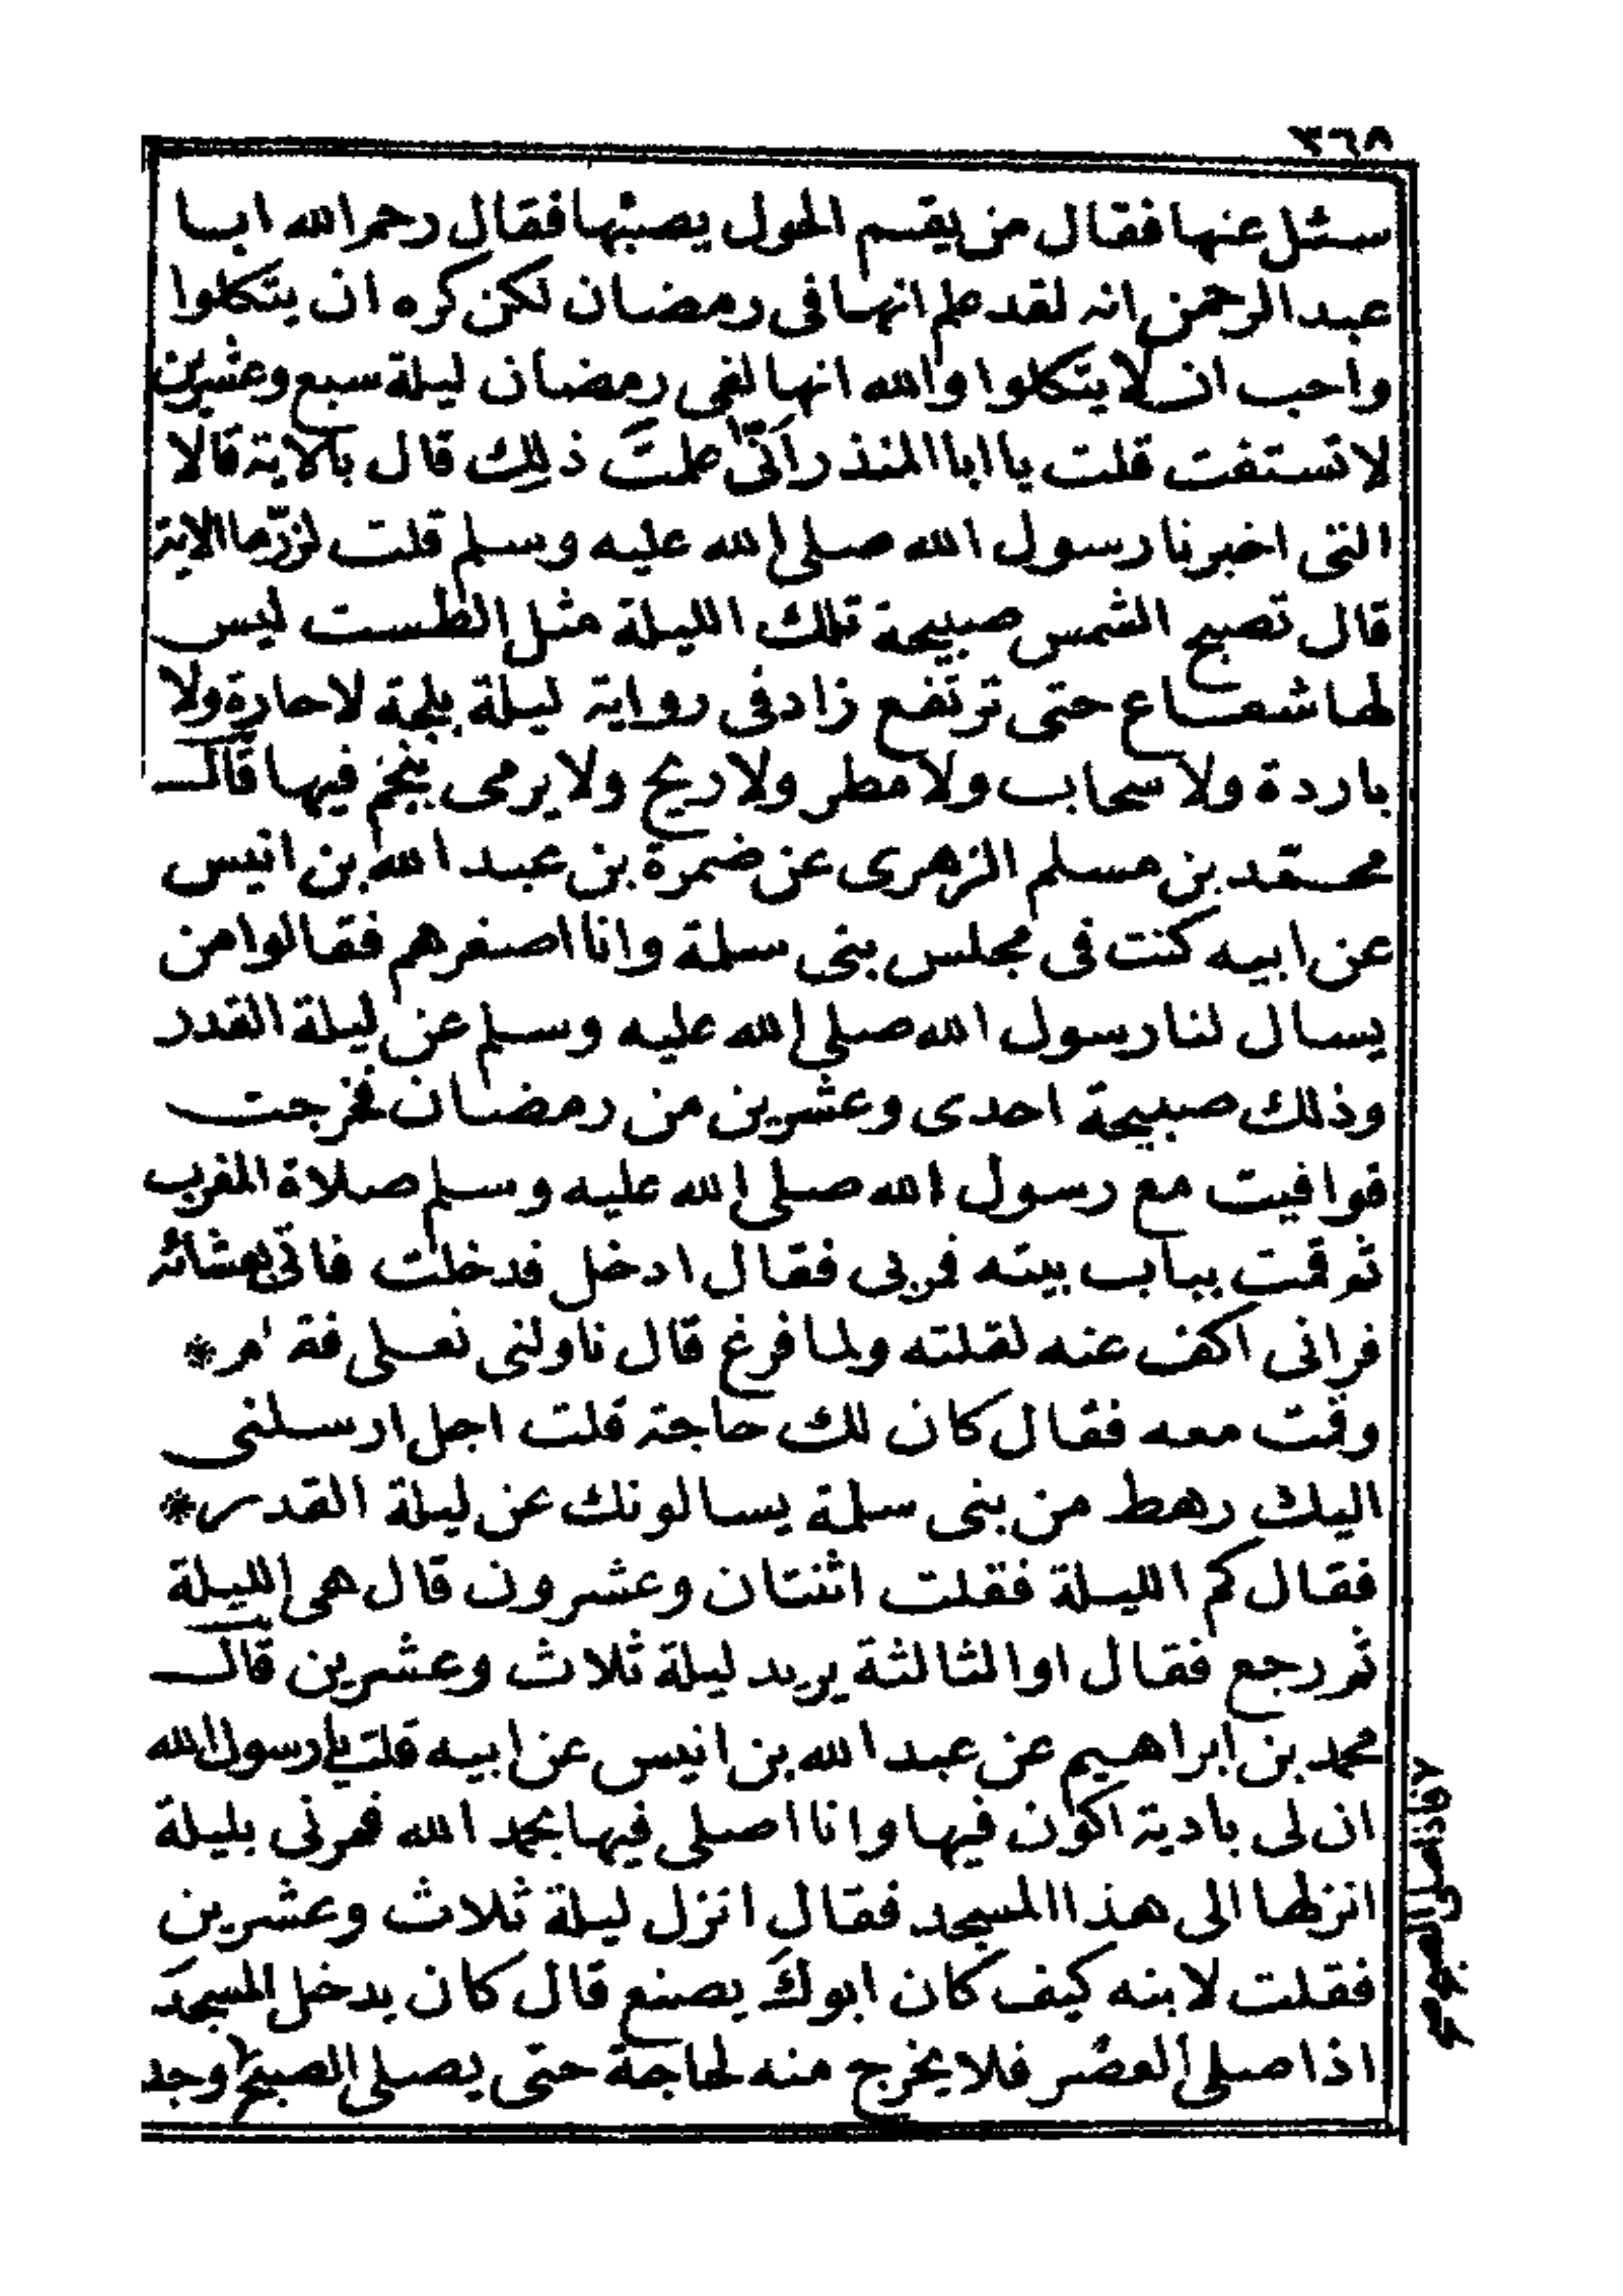 ٣٦٨
سئل عنها فقال من يقم الحول يصبها فقال رحم الله ابا
عبد الرحمن انه لقد علم انها فى رمضان لكن كره ان يتكلوا
واحب ان لا يتكلوا والله انها لفى رمضان ليلة سبع وعشرين
لا تستفت قلت يا ابا المنذر اَنّى علمتَ ذلِك قال بالاية قالا
التى اخبرنا رسول الله صلى الله عليه وسلم قلت لزرّ ما الاية
قال تصبح الشمس صبيحة تلك الليلة مثل الطست ليس
لها شعاع حتى ترتفع زاد فى رواية ليلة بلجة لا حارة ولا
باردة ولا سحاب ولا مطر ولا ريح ولا يرمى بنجم فيها قال
محمد بن مسلم الزهرى عن ضمرة بن عبد الله بن انيس
عن ابيه كنت فى مجلس بنى سلمة وانا اصغرهم فقالوا من
يسال لنا رسول الله صلى الله عليه وسلم عن ليلة القدر
وذلك صبيحة احدى وعشرين من رمضان فخرجت
فوافيت مع رسول الله صلى الله عليه وسلم صلاة المغرب
ثم قمت بباب بيته فمر بى فقال ادخل فدخلت فاتى بعشائه
فرانى اكف عنه لقلته ولما فرغ قال ناولنى نعلى فقام *
وقمت معه فقال كان لك حاجة قلت اجل ارسلنى
اليك رهط من بنى سلمة يسالونك عن ليلة القدر *
فقال كم الليلة فقلت اثنتان وعشرون قال هى الليلة
ثم رجع فقال او الثالثة يريد ليلة ثلاث وعشرين قال
محمد بن ابراهيم عن عبد الله بن انيس عن ابيه قلت يا رسول الله
ان لى بادية اكون فيها وانا اصلى فيها بحمد الله فمرنى بليلة
انزلها الى هذا المسجد فقال انزل ليلة ثلاث وعشرين
فقلت لابنه كيف كان ابوكَ يصنع قال كان يدخل المسجدَ
اذا صلى العصر فلا يخرج منه لحاجة حتى يصلى الصبح ٢ وجد
٢ فاذا صلى الصبح صح